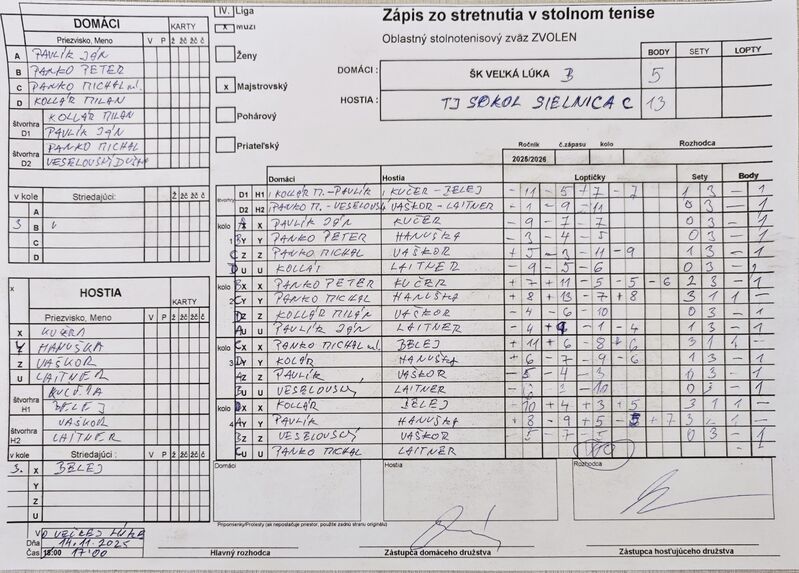 IV. Liga
Muži
Ženy
x Majstrovský
Pohárový
Priateľský
Zápis zo stretnutia v stolnom tenise
Oblastný stolnotenisový zväz ZVOLEN
BODY SETY LOPTY
DOMÁCI : ŠK VEĽKÁ LÚKA B 5
HOSTIA : TJ SOKOL SIELNICA C 13
Ročník č.zápasu kolo Rozhodca
2025/2026
DOMÁCI KARTY
Priezvisko, Meno V P ž žč žč č
A PAVLÍK JÁN
B PANKO PETER
C PANKO MICHAL ml.
D KOLLÁR MILAN
štvorhra D1 KOLLÁR MILAN
PAVLÍK JÁN
štvorhra D2 PANKO MICHAL
VESELOUSKÝ
v kole Striedajúci: ž žč žč č
A
3 B
C
D
HOSTIA KARTY
Priezvisko, Meno V P ž žč žč č
X KUČERA
Y HANUŠKA
Z VAŠKOR
U LAITNER
štvorhra H1 KUČERA
BELEJ
štvorhra H2 VAŠKOR
LAITNER
v kole Striedajúci: ž žč žč č
3. X BELEJ
Y
Z
U
Domáci Hostia Loptičky Sety Body
D1 H1 KOLLÁR M. - PAVLÍK KUČER - BELEJ - 11 - 5 + 7 - 7 1 3 - 1
D2 H2 PANKO M. - VESELOUSKÝ VAŠKOR - LAITNER - 1 - 9 - 11 0 3 - 1
kolo 1 A X PAVLÍK JÁN KUČER - 9 - 7 - 7 0 3 - 1
B Y PANKO PETER HANUŠKA - 3 - 4 - 5 0 3 - 1
C Z PANKO MICHAL VAŠKOR + 5 - 3 - 11 - 9 1 3 - 1
D U KOLLÁR LAITNER - 9 - 5 - 6 0 3 - 1
kolo 2 B X PANKO PETER KUČER + 7 + 11 - 5 - 5 - 6 2 3 - 1
C Y PANKO MICHAL HANUŠKA + 8 + 13 - 7 + 8 3 1 1 -
D Z KOLLÁR MILAN VAŠKOR - 4 - 6 - 10 0 3 - 1
A U PAVLÍK JÁN LAITNER - 4 + 9 - 1 - 4 1 3 - 1
kolo 3 C X PANKO MICHAL ml. BELEJ + 11 + 6 - 8 + 6 3 1 1 -
D Y KOLÁR HANUŠKA + 6 - 7 - 9 - 6 1 3 - 1
A Z PAVLÍK VAŠKOR - 5 - 4 - 3 0 3 - 1
B U VESELOUSKÝ LAITNER - 3 - 10 0 3 - 1
kolo 4 D X KOLLÁR BELEJ - 10 + 4 + 3 + 5 3 1 1 -
A Y PAVLÍK HANUŠKA + 8 - 9 + 5 - + 7 3 1 -
B Z VESELOUSKÝ VAŠKOR - 5 - 7 - 5 0 3 - 1
C U PANKO MICHAL LAITNER
Domáci Hostia Rozhodca
Pripomienky/Protesty (ak nepostačuje priestor, použite zadnú stranu originálu)
V VEĽKEJ LÚKE
Dňa 14.11.2025
Čas 18:00 17:00
Hlavný rozhodca Zástupca domáceho družstva Zástupca hosťujúceho družstva